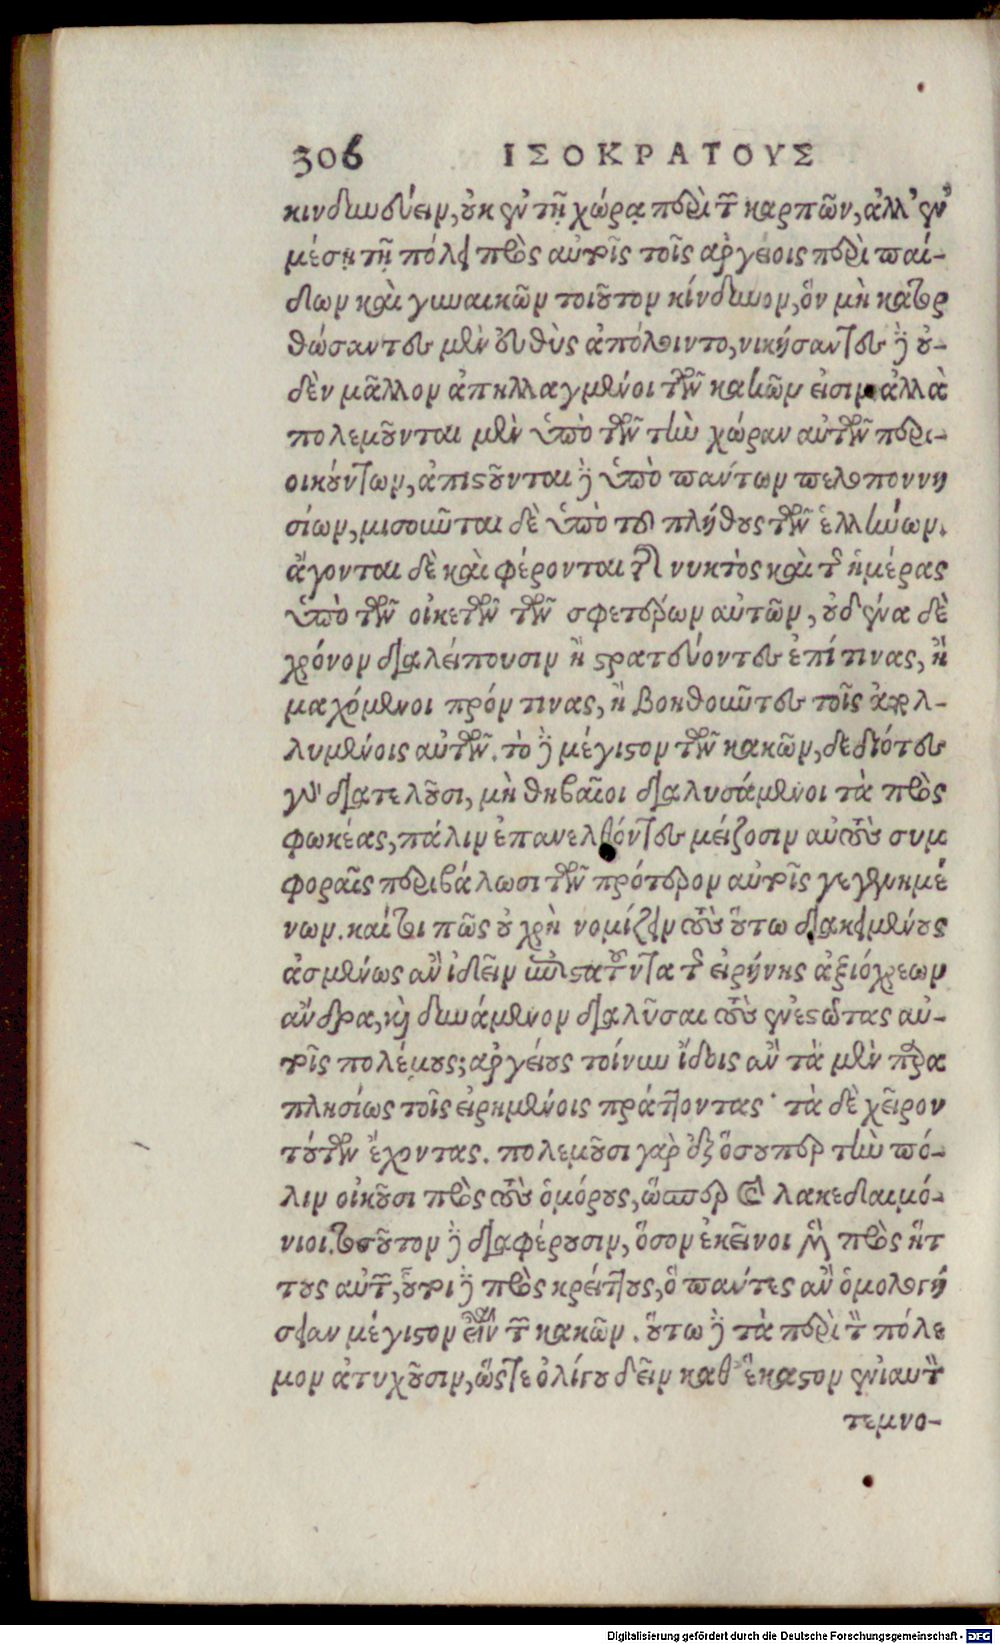 306 ΙΣΟΚΡΑΤΟΥΣ
κινδυνεύειν, οὐκ ἐν τῇ χώρᾳ περὶ τῶν καρπῶν, ἀλλ' ἐν
μέσῃ τῇ πόλει πρὸς αὐτοῖς τοῖς ἀργείοις περὶ παί-
δων καὶ γυναικῶν τοιοῦτον κίνδυνον, ὃν μὴ κατορ
θώσαντες μὲν εὐθὺς ἀπόλοιντο, νικήσαντες δὲ οὐ-
δὲν μᾶλλον ἀπηλλαγμένοι τῶν κακῶν εἰσιν ἀλλὰ
πολεμοῦνται μὲν ὑπὸ τῶν τὴν χώραν αὐτῶν περι-
οικούντων, ἀπιστοῦνται δὲ ὑπὸ πάντων πελοποννη
σίων, μισοῦνται δὲ ὑπὸ τοῦ πλήθους τῶν ἑλλήνων.
ἄγονται δὲ καὶ φέρονται καὶ νυκτὸς καὶ τῆς ἡμέρας
ὑπὸ τῶν οἰκετῶν τῶν σφετέρων αὐτῶν, οὐδένα δὲ
χρόνον διαλείπουσιν ἢ στρατεύοντες ἐπί τινας, ἢ
μαχόμενοι πρόν τινας, ἢ βοηθοῦντες τοῖς ἀπολ-
λυμένοις αὐτῶν. τὸ δὲ μέγιστον τῶν κακῶν, δεδιότες
γὰρ διατελοῦσι, μὴ θηβαῖοι διαλυσάμενοι τὰ πρὸς
φωκέας, πάλιν ἐπανελθόντες μείζοσιν αὐτοὺς συμ
φοραῖς περιβάλωσι τῶν πρότερον αὐτοῖς γεγενημέ
νων. καίτοι πῶς οὐ χρὴ νομίζειν τοὺς οὕτω διακειμένους
ἀσμένως ἂν ἰδεῖν ἐπιστατοῦντα τῆς εἰρήνης ἀξιόχρεων
ἄνδρα, καὶ δυνάμενον διαλῦσαι τοὺς ἐνεστῶτας αὐ-
τοῖς πολέμους; ἀργείους τοίνυν ἴδοις ἂν τὰ μὲν παρα
πλησίως τοῖς εἰρημένοις πράττοντας· τὰ δὲ χεῖρον
τούτων ἔχοντας. πολεμοῦσι γὰρ ἐξ ὅσου περ τὴν πό-
λιν οἰκοῦσι πρὸς τοὺς ὁμόρους, ὥσπερ οἱ λακεδαιμό-
νιοι. τοσοῦτον δὲ διαφέρουσιν, ὅσον ἐκεῖνοι μὲν πρὸς ἥτ
τους αὐτῶν, οὗτοι δὲ πρὸς κρείττους, ὃ πάντες ἂν ὁμολογή
σειαν μέγιστον εἶναι τῶν κακῶν. οὕτω δὲ τὰ περὶ τὸν πόλε
μον ἀτυχοῦσιν, ὥστε ὀλίγου δεῖν καθ' ἕκαστον ἐνιαυτὸν
τεμνο-
Digitalisierung gefördert durch die Deutsche Forschungsgemeinschaft - DFG